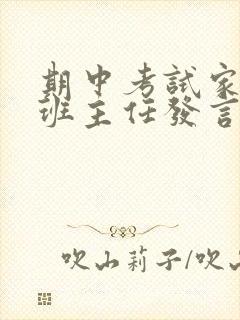 期中考試家
班主任發言
吹山莉子/吹山